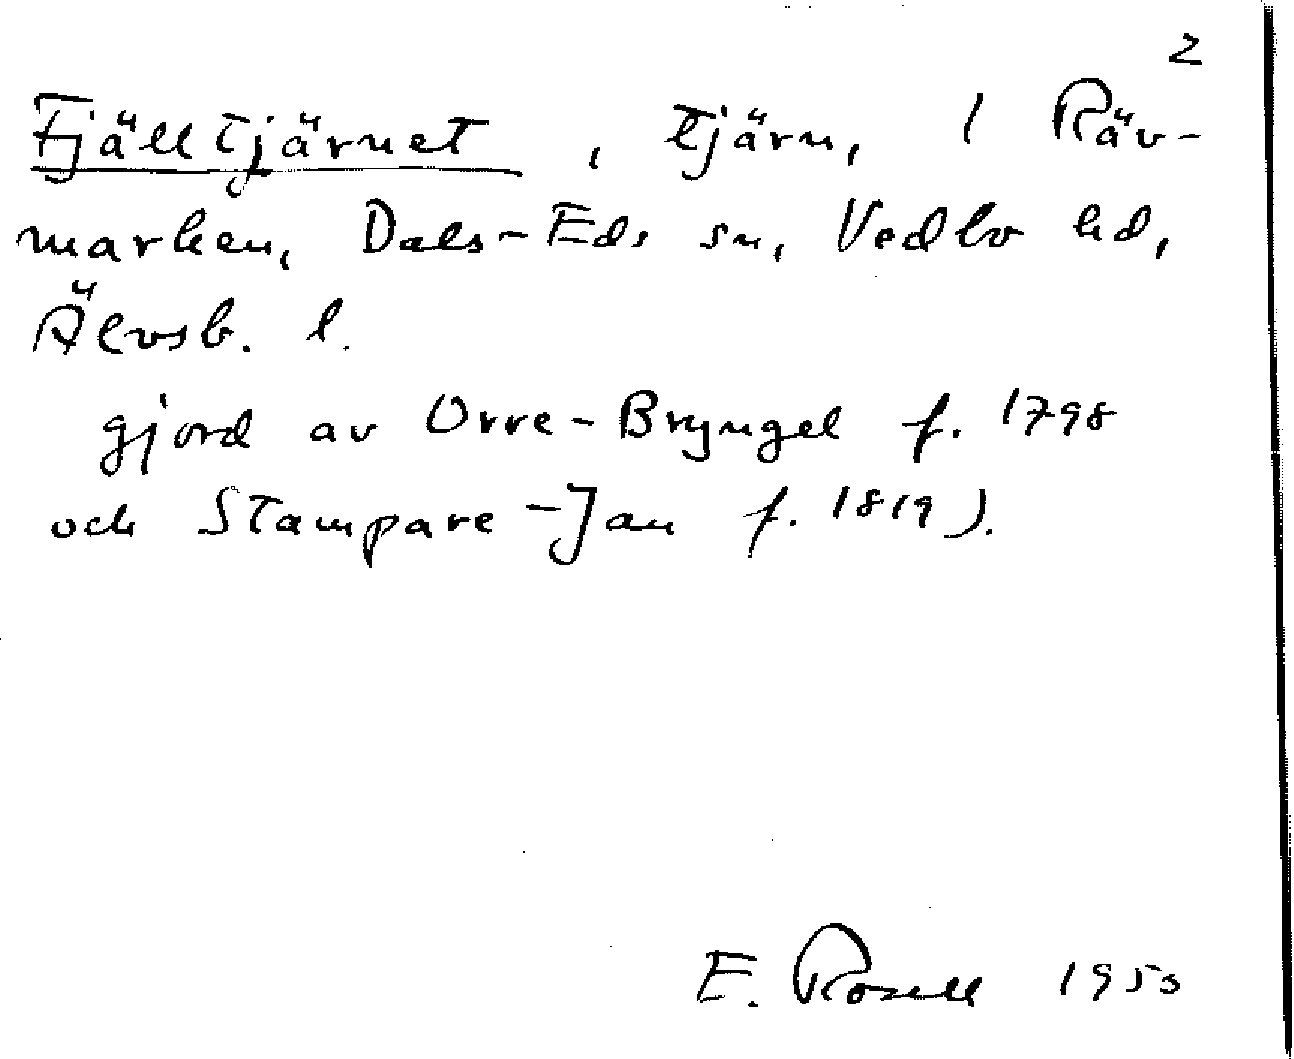 2
Fjälltjärnet, tjärn, i Räv-
marken, Dals-Eds sn, Vedbo hd,
Älvsb. l.
gjord av Orre-Bryngel f. 1798
och Stampare-Jan f. 1819).
E. Rosell 1950